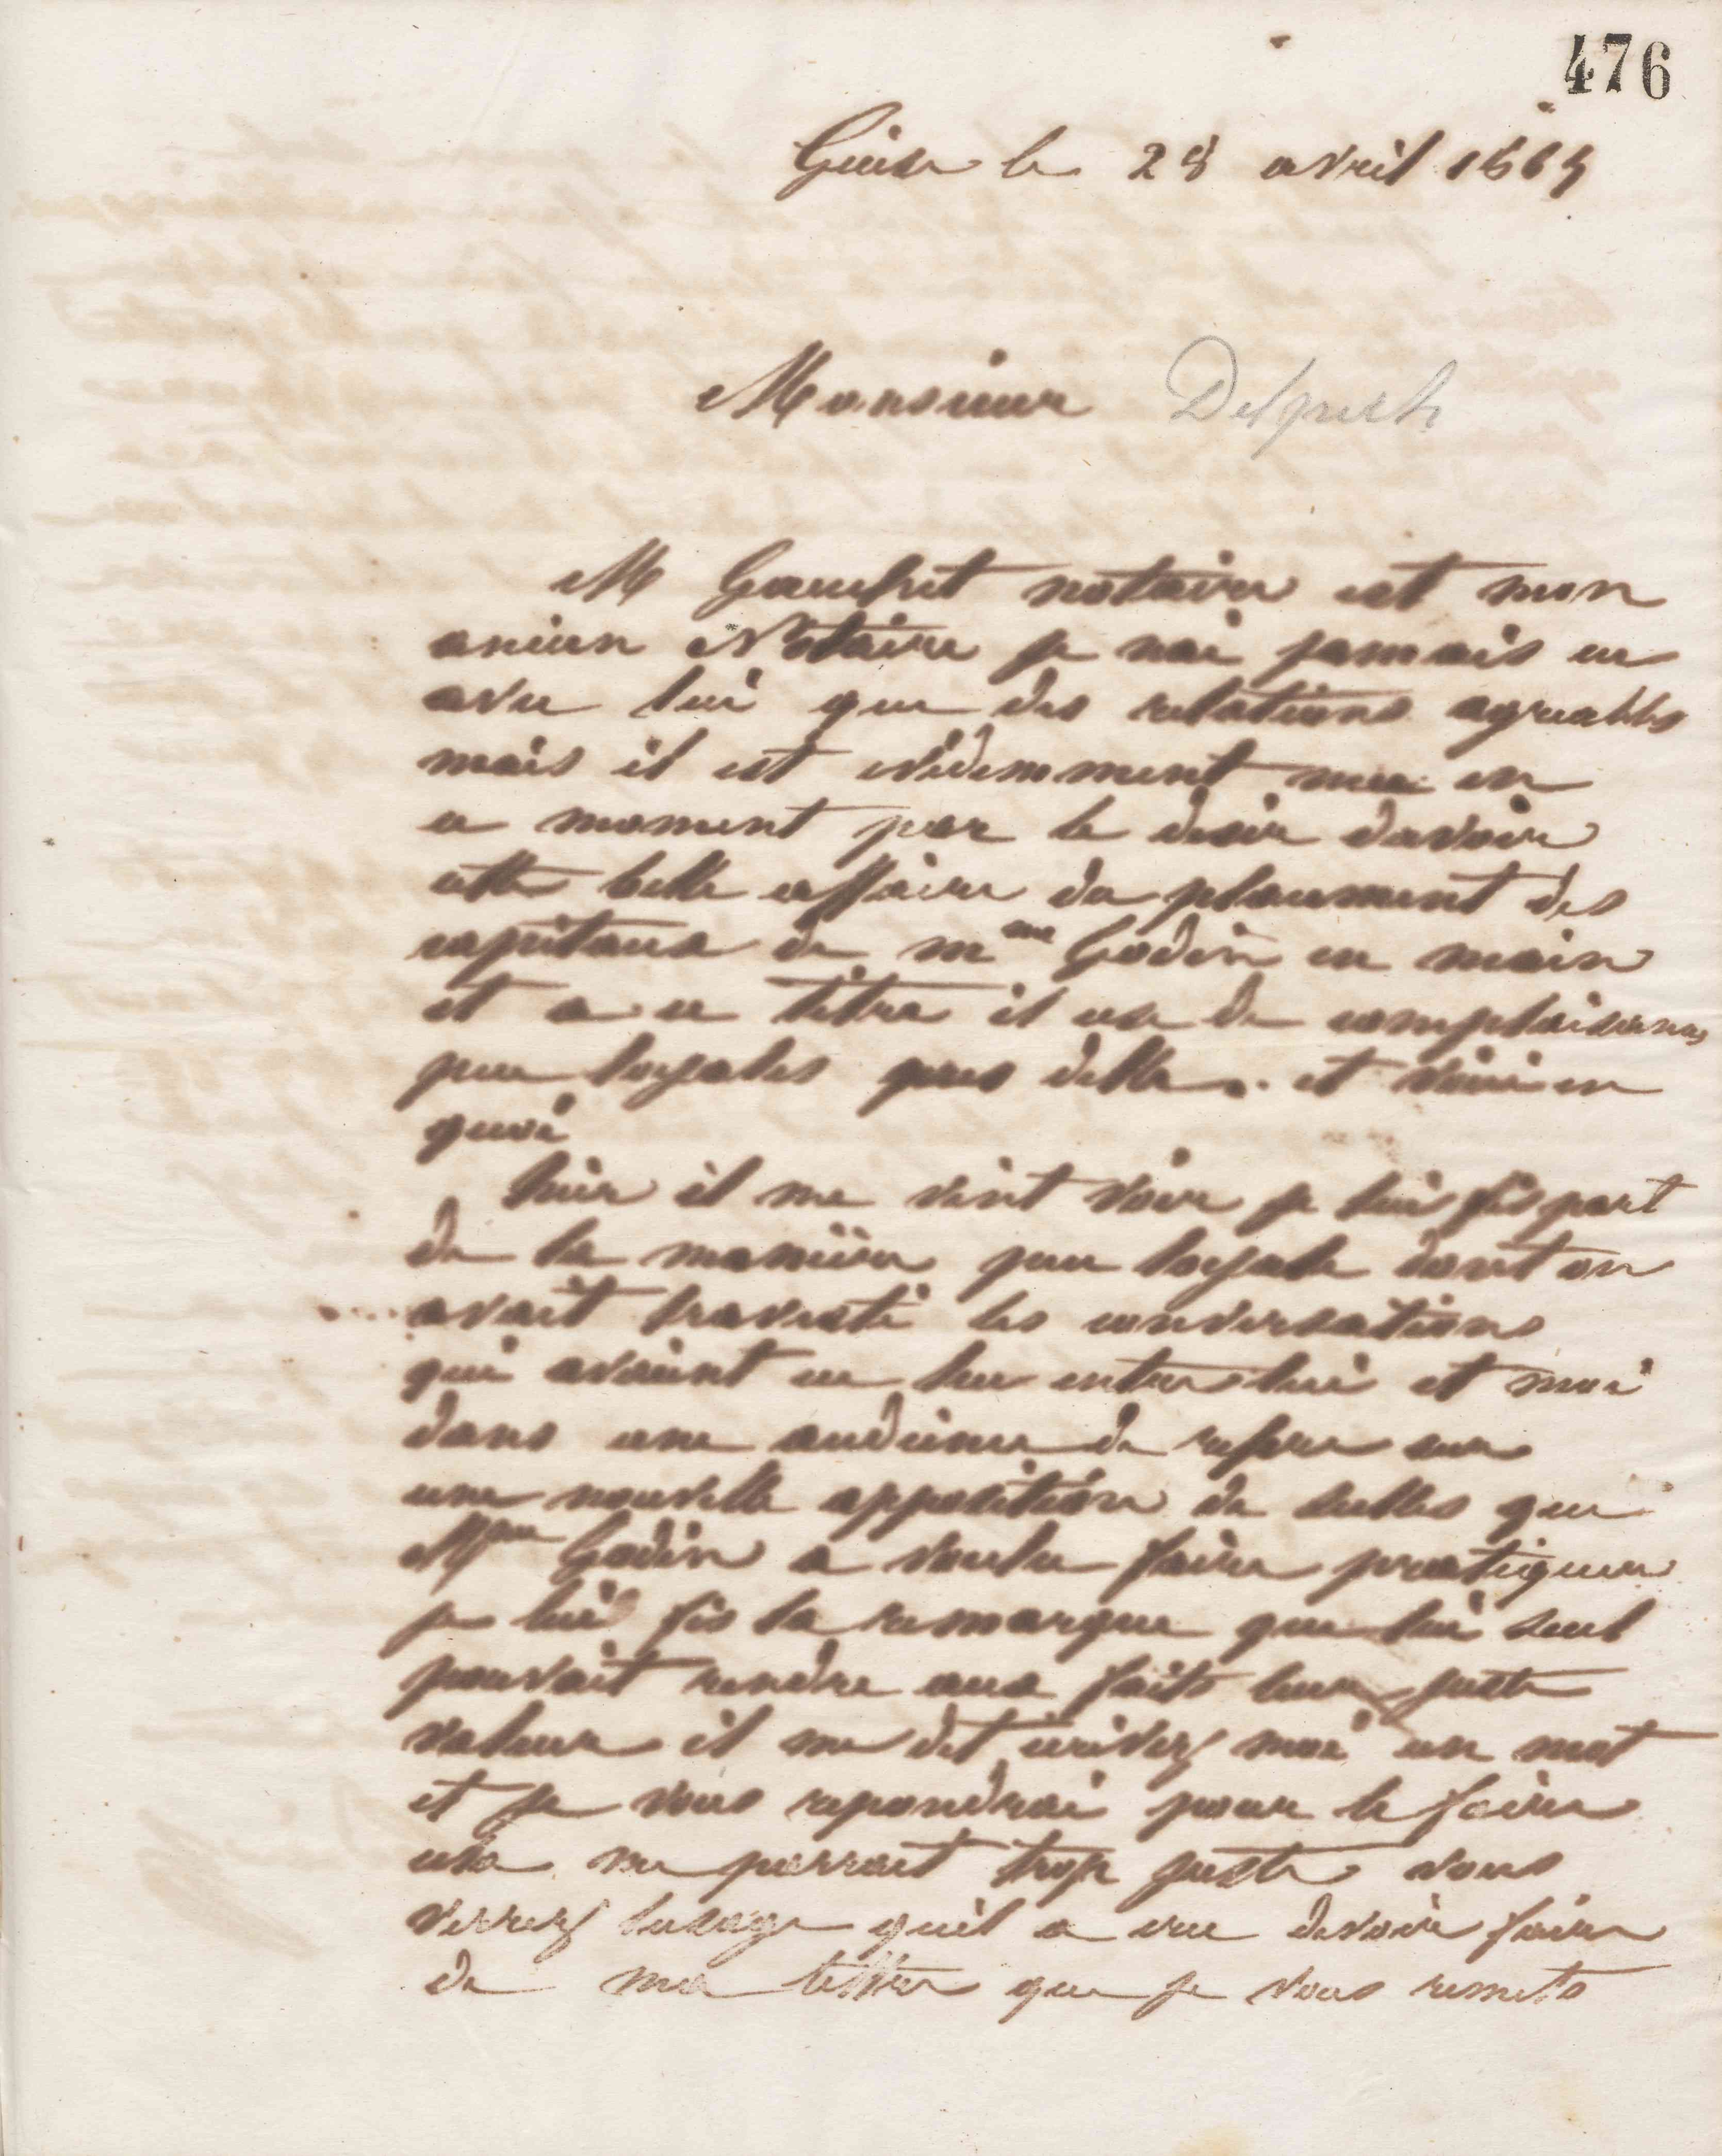 476
Guise le 28 avril 1865
Monsieur Delpech
M Gauchet notaire est mon
ancien Notaire je nai jamais eu
avec lui que des relations agreables
mais il est evidemment mu en
ce moment par le desir davoir
cette belle affaire du placement des
capitaux de Mme Godin en main
et a ce titre il use de complaisances
peu loyales pres delle. et voici en
quoi
hier il me vint voir je lui fis part
de la manière peu loyale dont on
avait travesti les conversations
qui avaient eu lieu entre lui et moi
dans une audience de refere sur
une nouvelle apposition de scellés que
Mme Godin a voulu faire pratiquer
je lui fis la remarque que lui seul
pouvait rendre aux faits leur juste
valeur il me dit ecrivez moi un mot
et je vous repondrai pour le faire
cela me parrait trop juste vous
verrez lusage quil a cru devoir faire
de ma lettre que je vous remets